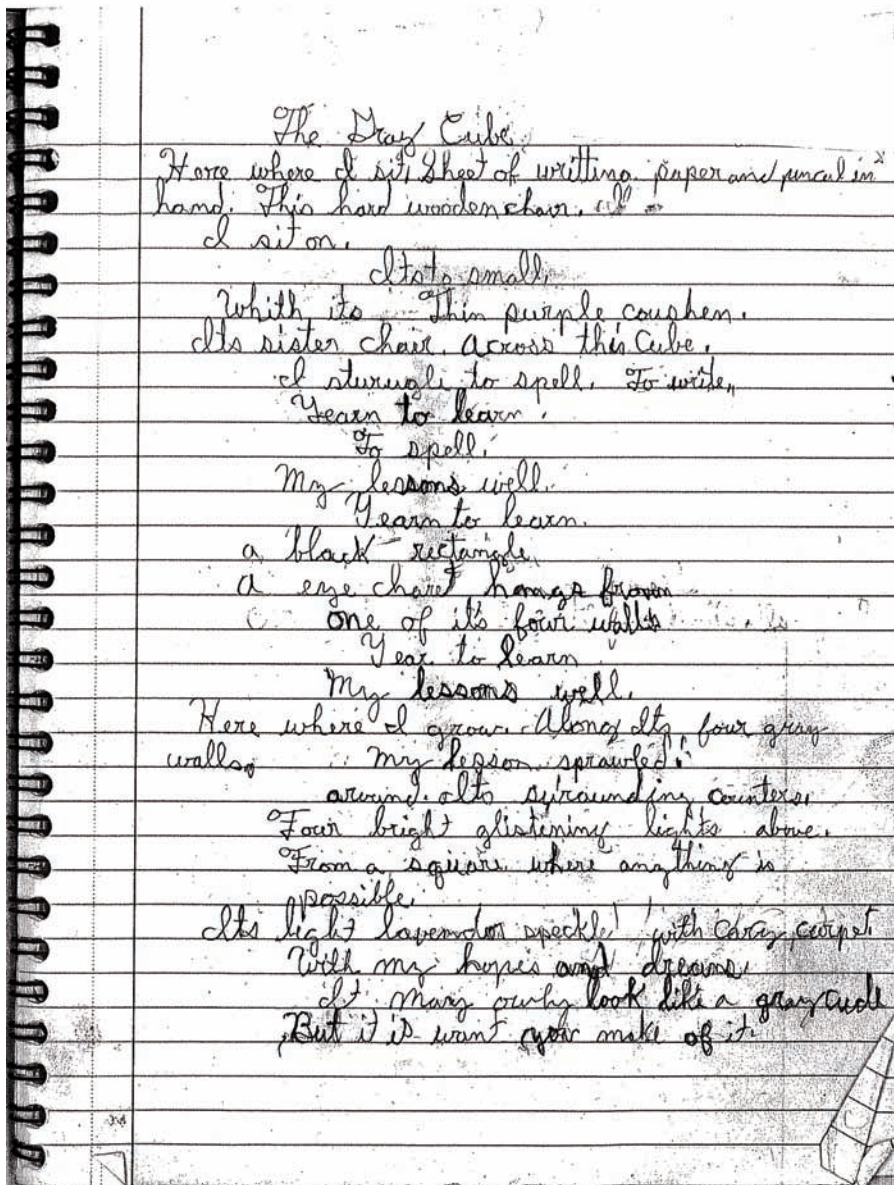 The Gray Cube
Here where I sit, Sheet of writting paper and pincul in
hand. This hard wooden chair.
I sit on.
Itsto small.
Whith its Thin purple coushen.
Its sister chair. Across this Cube.
I sturugle to spell. To write,
Yearn to learn.
To spell.
My lessons well.
Yearn to learn.
a black rectangle
a eye chart hangs from
one of it's four walls
Year to learn
My lessons well.
Here where I grow. Along Its four gray
walls. My lesson sprawled.
around. Its surounding counters.
Four bright glistening lights above.
From a square where anything is
possible.
Its light lavendor speckle with carpet.
With my hopes and dreams.
It may look like a gray
But it is want you make of it.